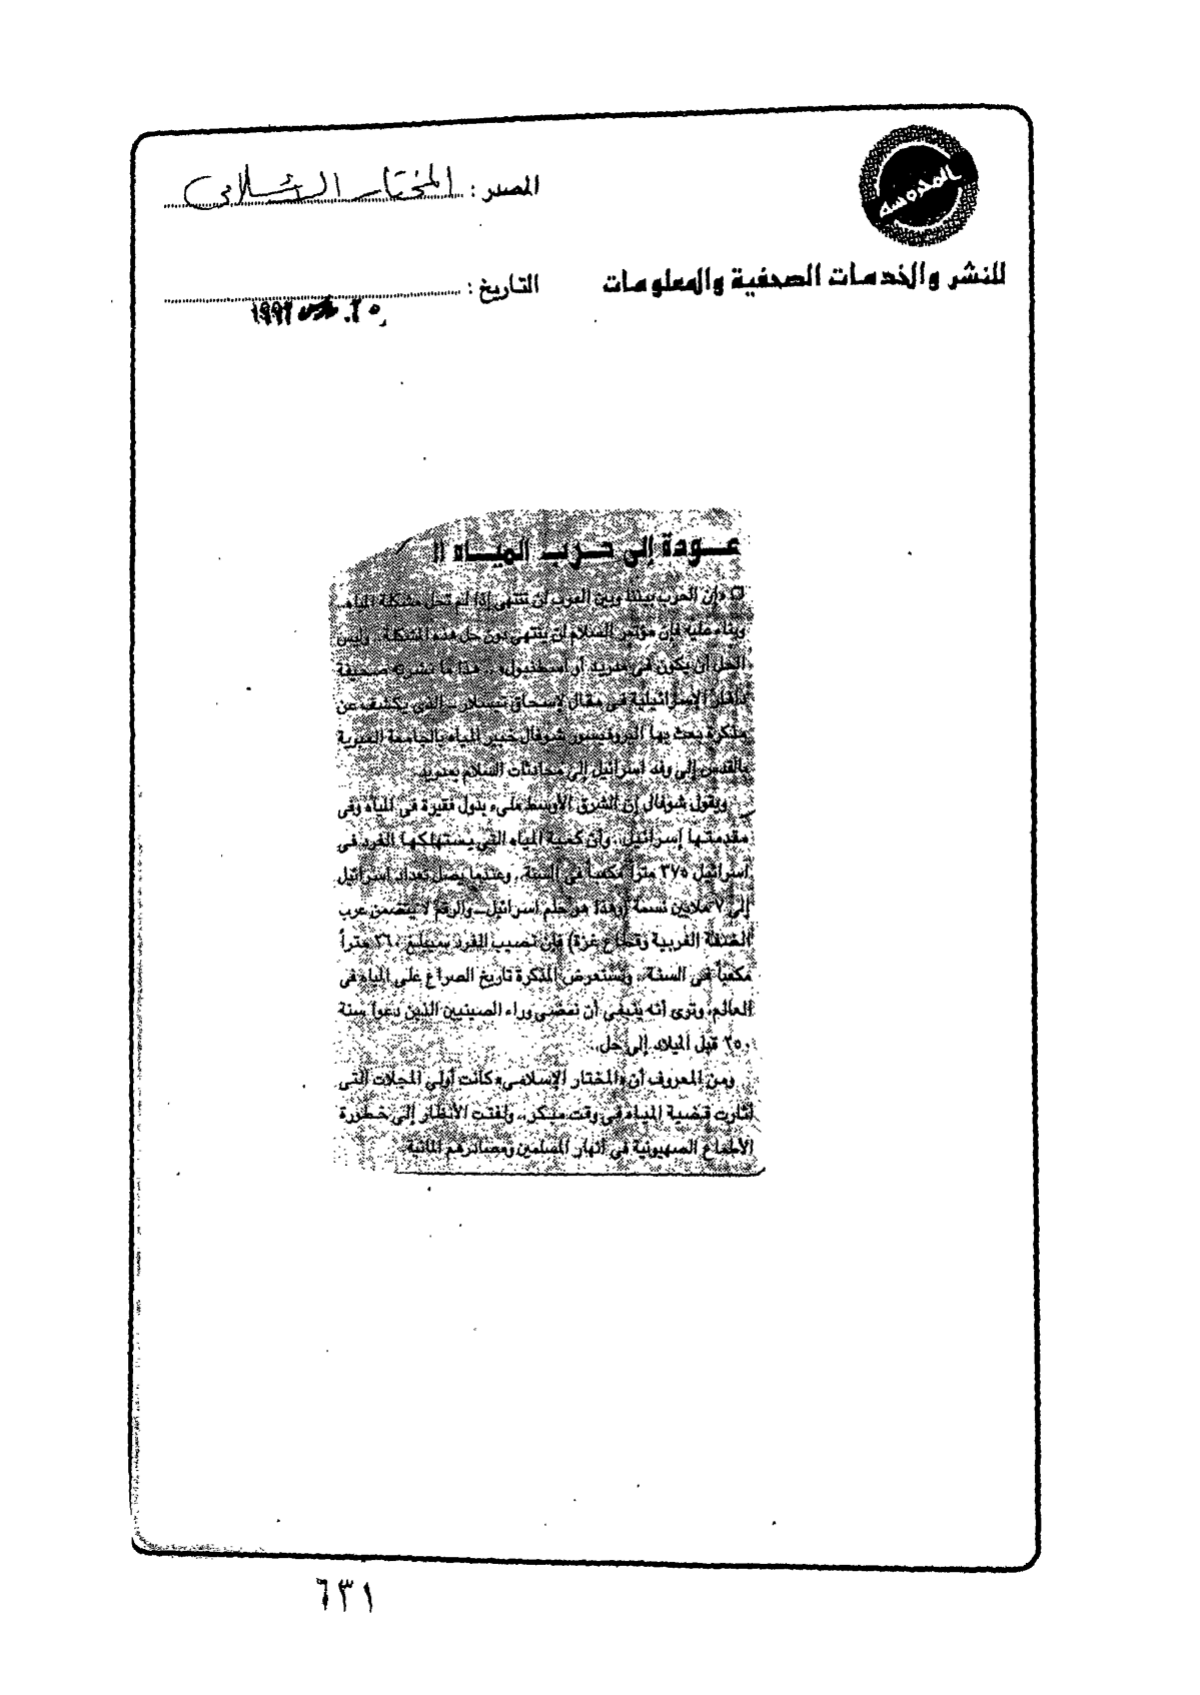 المدوسة
للنشر والخدمات الصحفية والمعلومات
المصدر : المختار الإسلامى
التاريخ :
مارس ١٩٩٢
عودة إلى حرب المياه !!
□ «إن الحرب بيننا وبين العرب لن تنتهى إذا لم تحل مشكلة المياه..
وبناء عليه فإن مؤتمر السلام لن ينتهى دون حل هذه المشكلة.. وليس
الحل أن يكون فى مدريد أو اسطنبول» .. هذا ما نشرته صحيفة
دافار الإسرائيلية فى مقال لإسحاق تيسلار .. الذى يكشف عن
مذكرة بعث بها البروفيسور شوفال خبير المياه بالجامعة العبرية
بالقدس إلى وفد اسرائيل إلى محادثات السلام بمدريد.
ويقول شوفال إن الشرق الأوسط ملىء بدول فقيرة فى المياه وفى
مقدمتها إسرائيل.. وأن كمية المياه التى يستهلكها الفرد فى
اسرائيل ٣٧٥ متراً مكعباً فى السنة.. وعندما يصل تعداد اسرائيل
إلى ٧ ملايين نسمة (وهذا هو حلم اسرائيل.. والرقم لا يتضمن عرب
الضفة الغربية وقطاع غزة) فإن نصيب الفرد سيبلغ ٢٦٠ متراً
مكعباً فى السنة.. وتستعرض المذكرة تاريخ الصراع على المياه فى
العالم، وترى أنه ينبغى أن نمضى وراء الصينيين الذين دعوا سنة
٢٥٠ قبل الميلاد إلى حل..
ومن المعروف أن «المختار الإسلامى» كانت أولى المجلات التى
أثارت قضية المياه فى وقت مبكر.. ولفتت الأنظار إلى خطورة
الأطماع الصهيونية فى أنهار المسلمين ومصادرهم المائية.
٦٣١